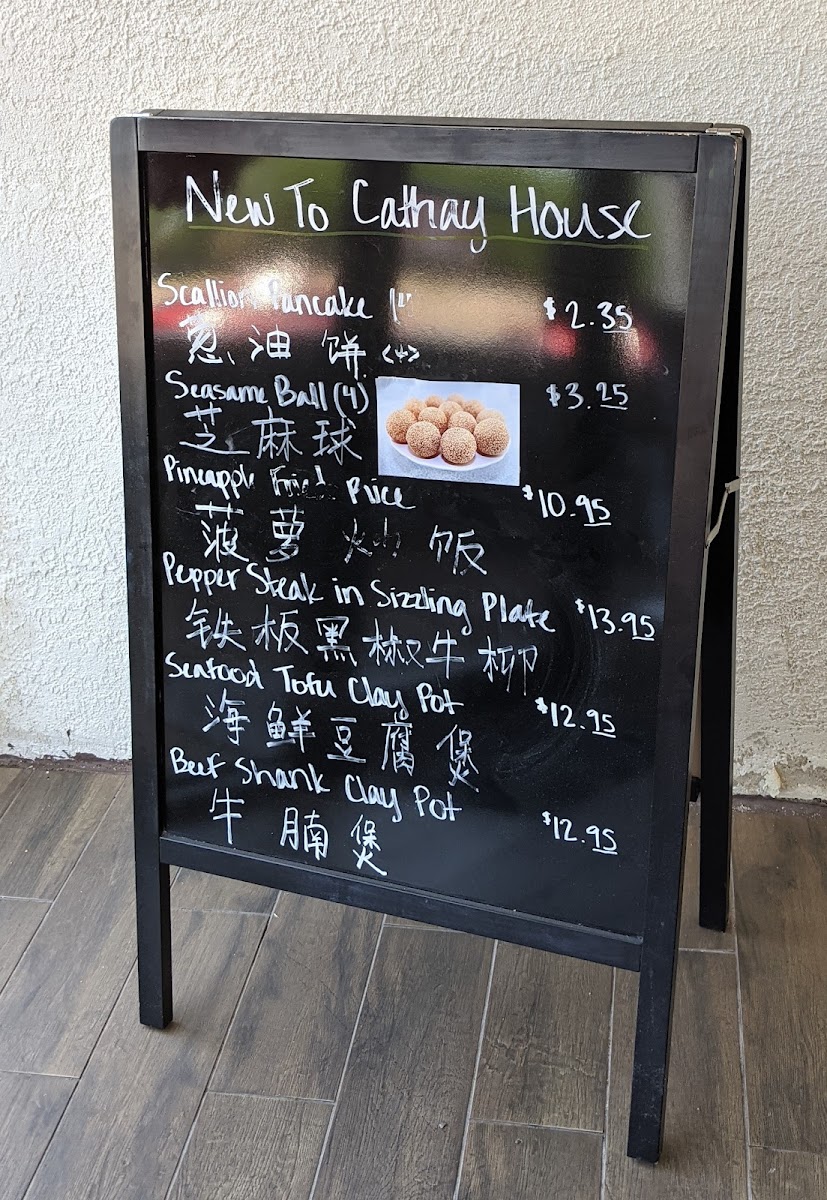 New To Cathay House
Scallion Pancake (4) $2.35
葱油饼 <4>
Seasame Ball (4) $3.25
芝麻球
Pineapple Fried Rice $10.95
菠萝炒饭
Pepper Steak in Sizzling Plate $13.95
铁板黑椒牛柳
Seafood Tofu Clay Pot $12.95
海鲜豆腐煲
Beef Shank Clay Pot $12.95
牛腩煲